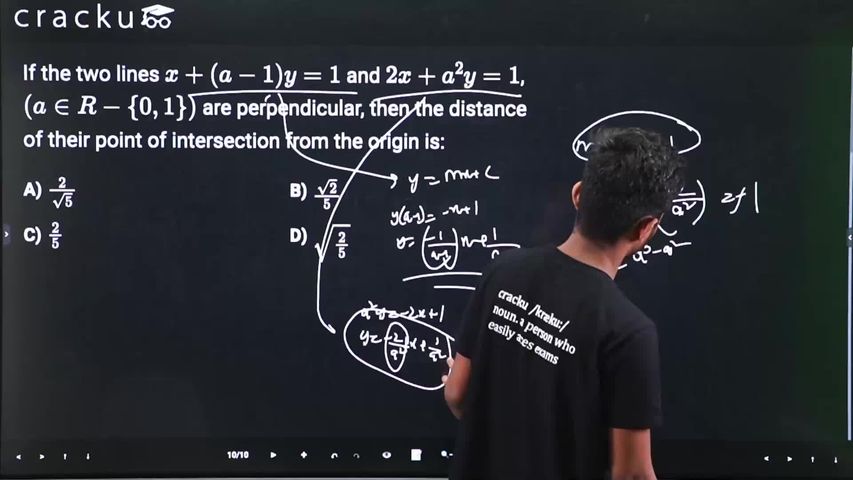 cracku
If the two lines x + (a − 1)y = 1 and 2x + a²y = 1,
(a ∈ R − {0, 1}) are perpendicular, then the distance
of their point of intersection from the origin is:
A) 2/√5
B) √2/5
C) 2/5
D) √(2/5)
y = mx + c
y(a-1) = -x+1
a²y = -2x+1
y = -2/a² x + 1/a²
cracku /kræku:/
noun. a person who
easily aces exams
10/10